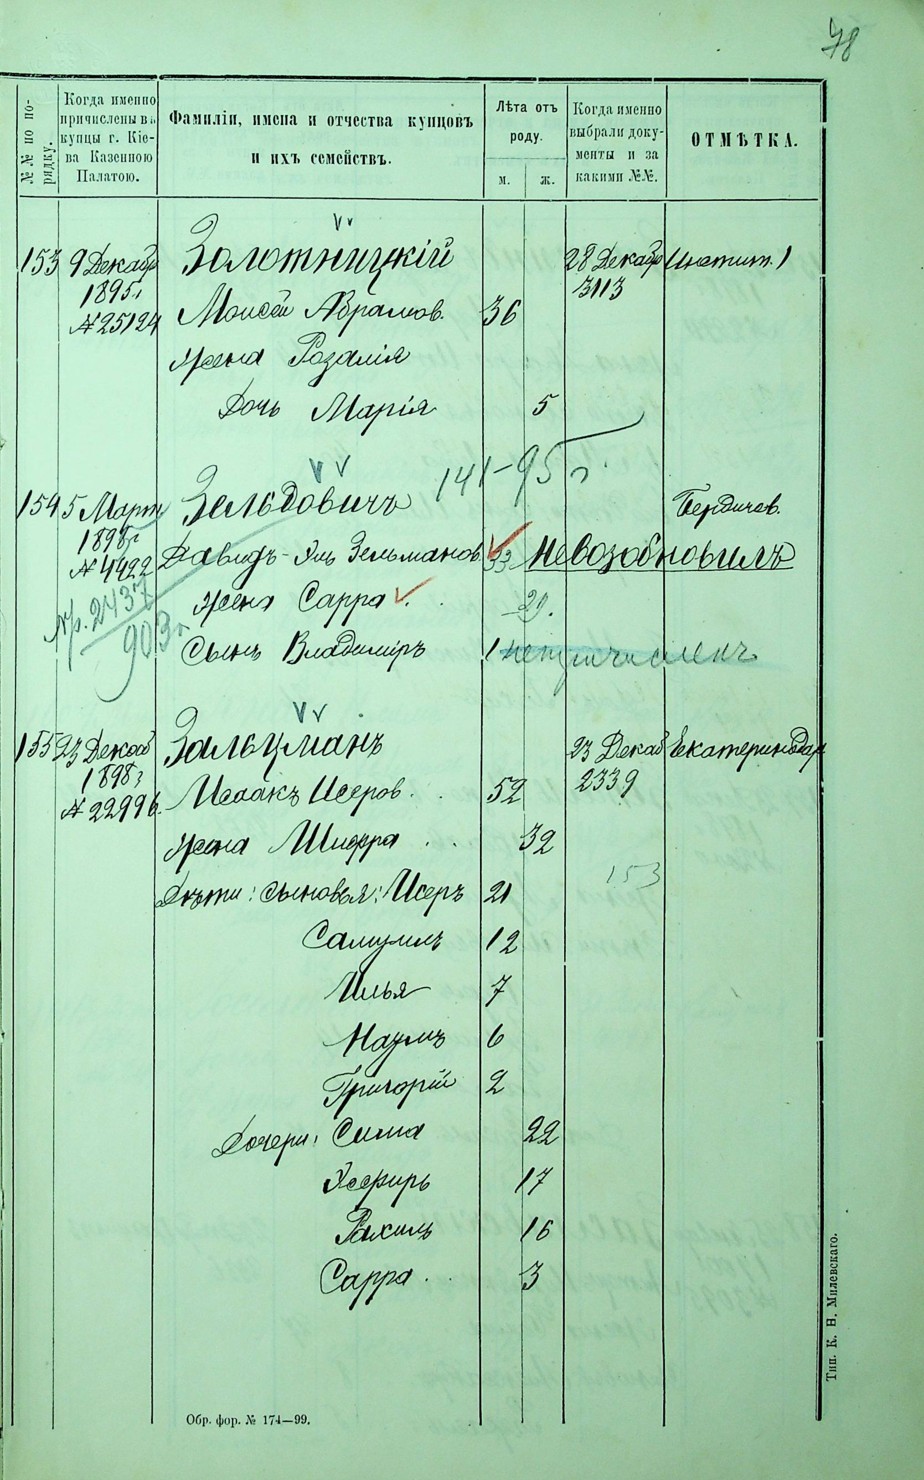 78
№№ по по-
рядку.
Когда именно
причислены въ
купцы г. Кіе-
ва Казенною
Палатою.
Фамиліи, имена и отчества купцовъ
и ихъ семействъ.
Лѣта отъ
роду.
м.
ж.
Когда именно
выбрали доку-
менты и за
какими №№.
ОТМѢТКА.
153 9 Декабр Золотницкій 28 Декабр
1895г 3113
№ 25124 Моисей Абрамов. 36
жена Розалія
дочь Марія 5
141-95 г.
154 5 Март Зельдовичъ Бердичев.
1898г Давидъ-Эль Зельманов. 33 Невозобновилъ
№ 4922
жена Сарра 29.
пр. 2437
903г
сынъ Владиміръ 1 непричисленъ
155 23 Декаб Зальцманъ 23 Декаб Екатеринодар
1898г 2339
№ 22996. Исаакъ Исеров. 52
жена Шифра 32
153
дѣти: сыновья: Исеръ 21
Самуилъ 12
Илья 7
Наумъ 6
Григорій 2
дочери: Сима 22
Эсфирь 17
Рахиль 16
Сарра 3
Обр. фор. № 174—99.
Тип. К. Н. Милевскаго.